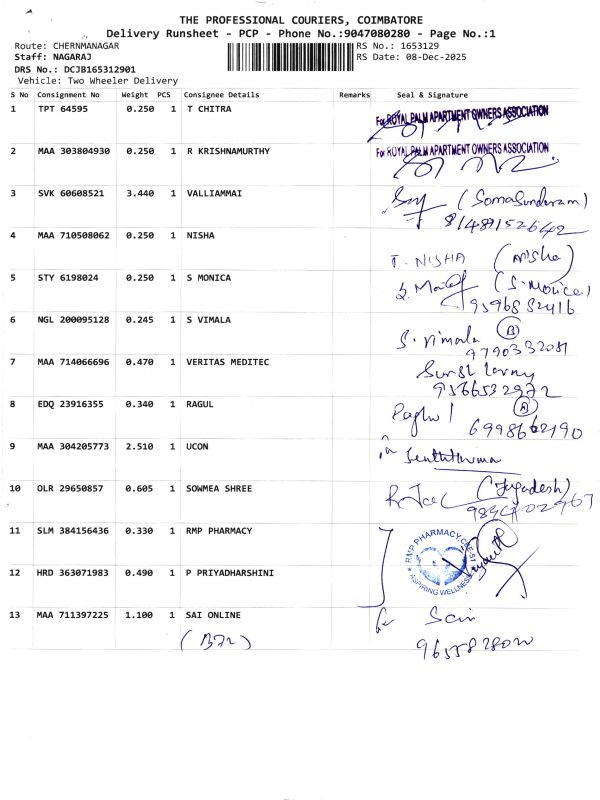 THE PROFESSIONAL COURIERS, COIMBATORE
Delivery Runsheet - PCP - Phone No.:9047080280 - Page No.:1
Route: CHERNMANAGAR RS No.: 1653129
Staff: NAGARAJ RS Date: 08-Dec-2025
DRS No.: DCJB165312901
Vehicle: Two Wheeler Delivery
S No Consignment No Weight PCS Consignee Details Remarks Seal & Signature
1 TPT 64595 0.250 1 T CHITRA
For ROYAL PALM APARTMENT OWNERS ASSOCIATION
2 MAA 303804930 0.250 1 R KRISHNAMURTHY
For ROYAL PALM APARTMENT OWNERS ASSOCIATION
3 SVK 60608521 3.440 1 VALLIAMMAI
(Somasundaram)
4 MAA 710508062 0.250 1 NISHA
T. NISHA (Nisha)
5 STY 6198024 0.250 1 S MONICA
(S. Monica)
6 NGL 200095128 0.245 1 S VIMALA
S. Vimala B
9790332081
7 MAA 714066696 0.470 1 VERITAS MEDITEC
9566532972
8 EDQ 23916355 0.340 1 RAGUL
A
9 MAA 304205773 2.510 1 UCON
10 OLR 29650857 0.605 1 SOWMEA SHREE
(Jagadesh)
11 SLM 384156436 0.330 1 RMP PHARMACY
RMP PHARMACY, CBE-51
ASPIRING WELLNESS
12 HRD 363071983 0.490 1 P PRIYADHARSHINI
13 MAA 711397225 1.100 1 SAI ONLINE
for Sai
(B72)